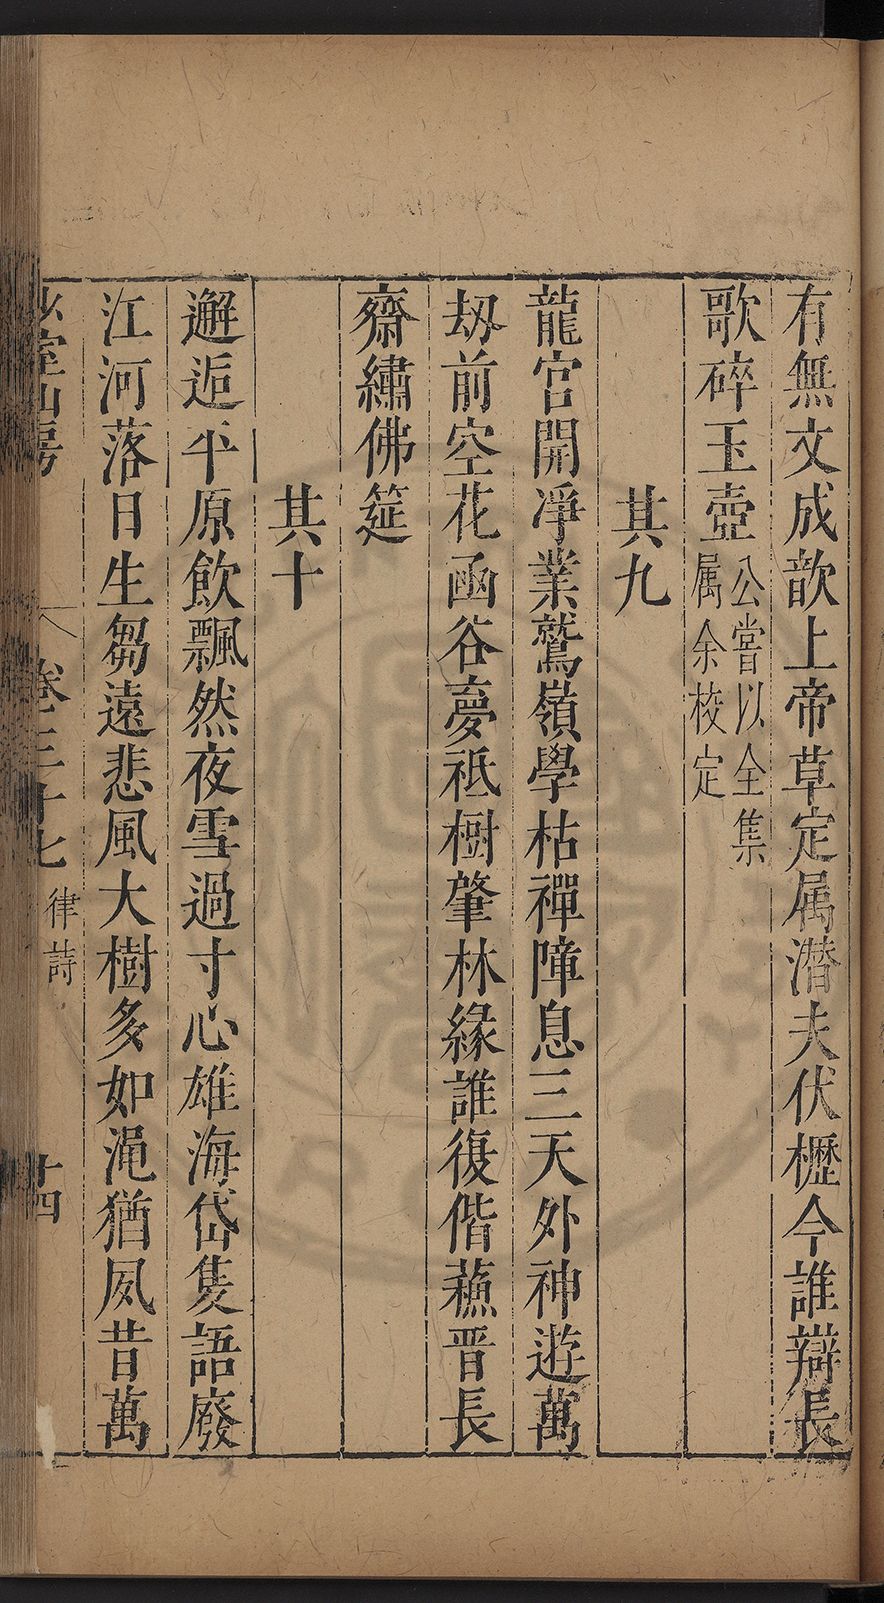 有無文成歆上帝草定属潛夫伏櫪今誰辯長
歌碎玉壺公嘗以全集
属余校定
其九
龍宮開凈業鷲嶺學枯禪障息三天外神遊萬
刼前空花函谷夢祗樹肇林緣誰復偕蘓晋長
齋繡佛筵
其十
邂逅平原飲飄然夜雪過寸心雄海岱隻語廢
江河落日生芻遠悲風大樹多如渑猶夙昔萬
少室山房
卷三十七 律詩
十四